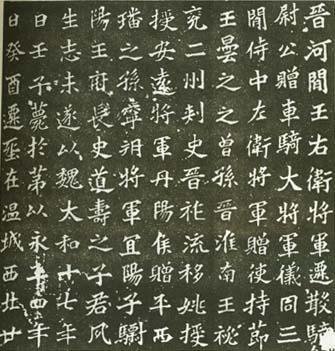 晉河間王右衛將軍遷散騎
尉公贈車騎大將軍儀同三
閒侍中左衛將軍贈使持節
王曇之之曾孫晉淮南王祕
兗二州刾史晉祚流移姚授
授安遠將軍丹陽侯贈平西
璠之孫寧朔將軍宜陽子驎
陽王府長史道壽之子君夙
生志未遂以魏太和十七年
日壬子薨於苐以永平四年
日癸酉遷塟在温城西北廿